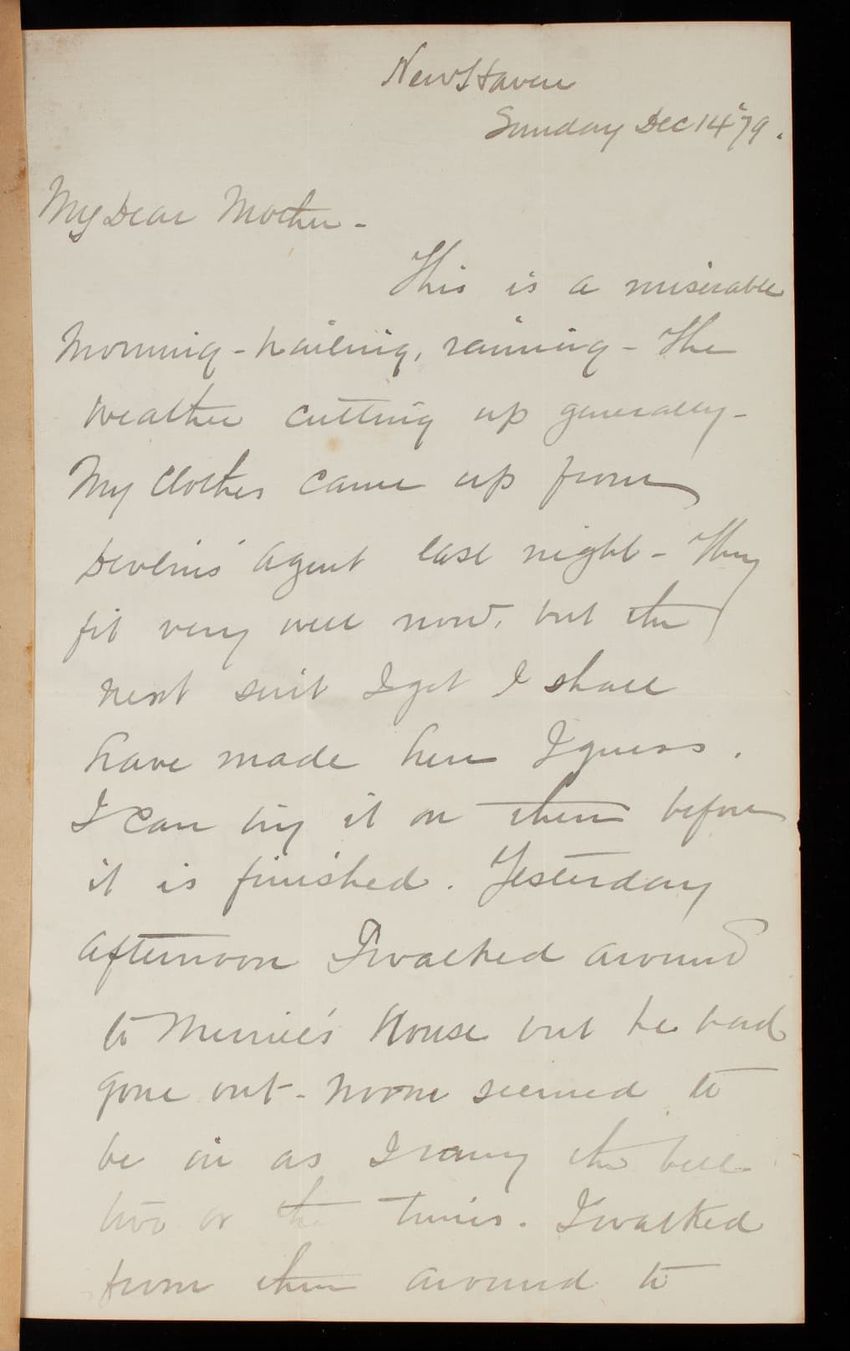 New Haven
Sunday Dec 14" 79.
My Dear Mother -
This is a miserable
morning - hailing, raining - the
weather cutting up generally -
My clothes came up from
Devlins' agent last night - They
fit very well now, but the
next suit I get I shall
have made here I guess.
I can try it on then before
it is finished. Yesterday
afternoon I walked around
to Merrill's House but he had
gone out - no one seemed to
be in as I rang the bell
two or times. I walked
from there around to